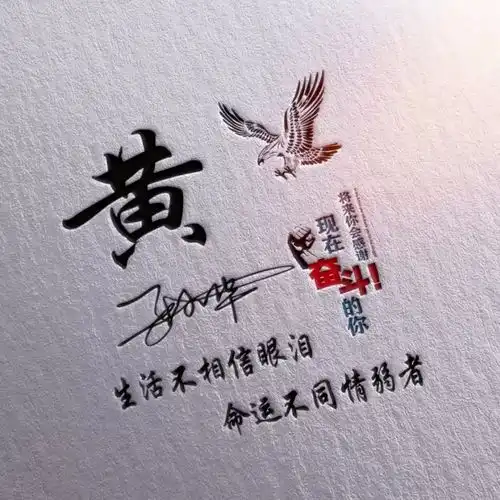 黄
将来你会感谢
现在
奋斗
的你
生活不相信眼泪
命运不同情弱者